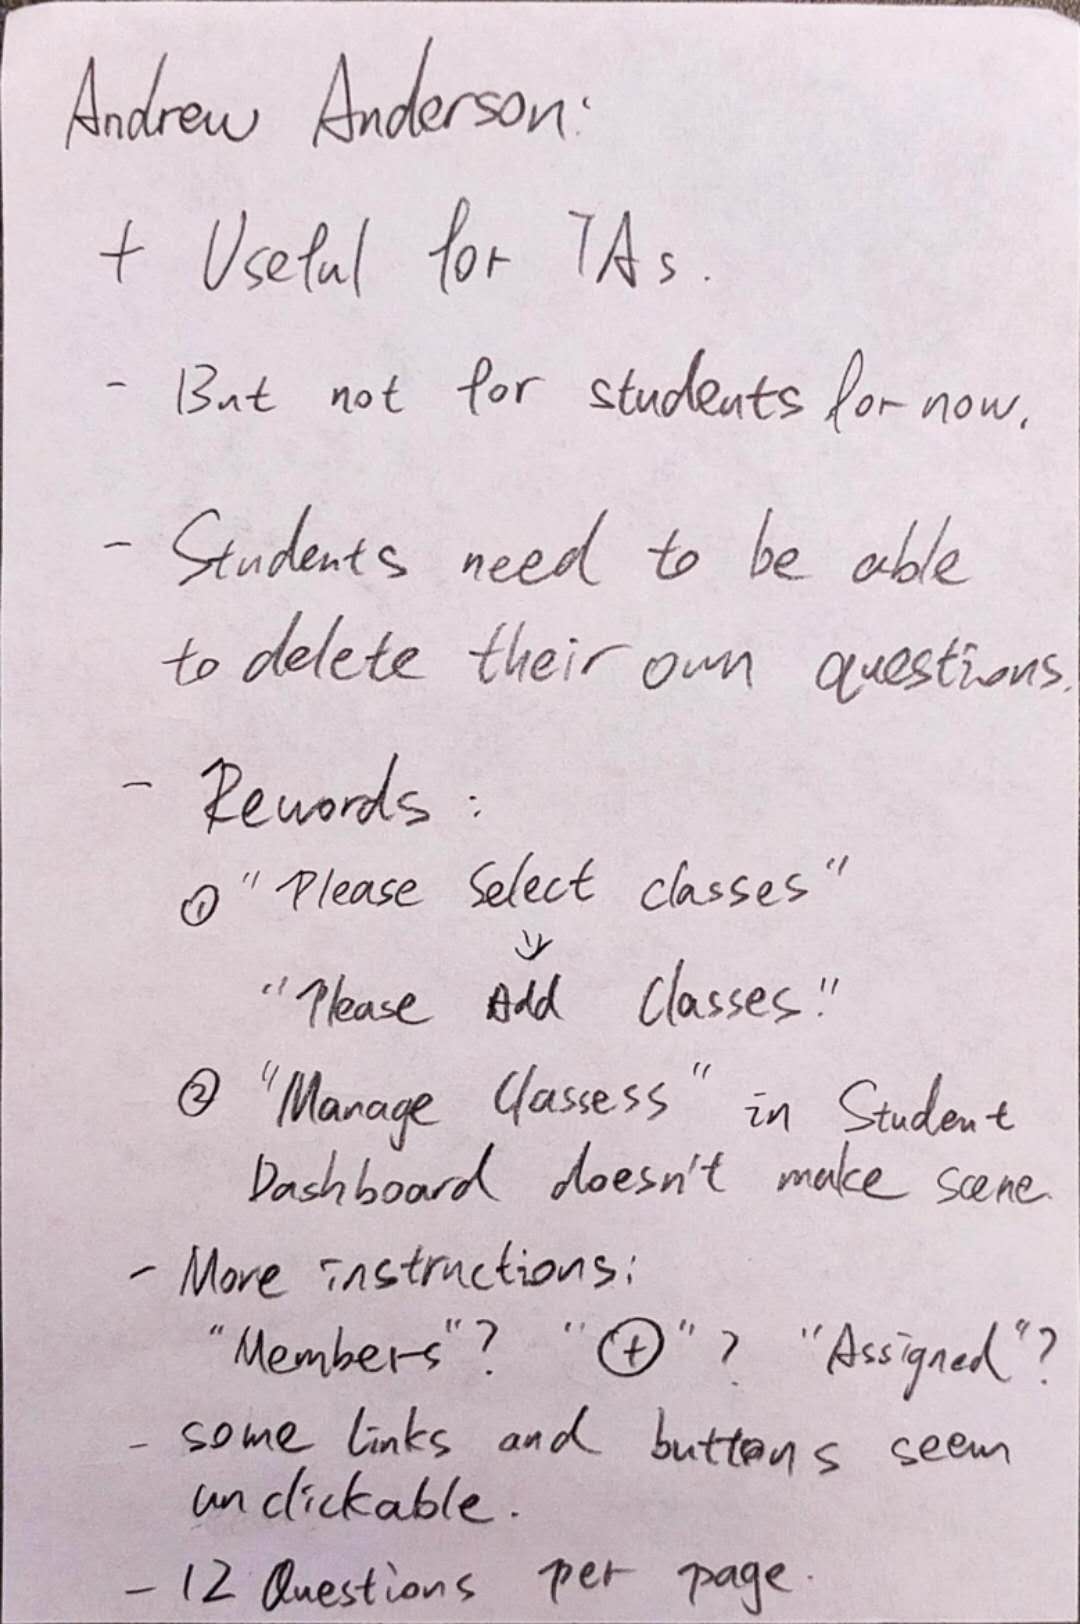 Andrew Anderson:
+ Useful for TAs.
- But not for students for now.
- Students need to be able
to delete their own questions.
- Rewords :
① "Please Select classes"
↓
"Please Add Classes."
② "Manage Classess" in Student
Dashboard doesn't make scene.
- More instructions:
"Members"? "⊕"? "Assigned"?
- some links and buttons seem
unclickable.
- 12 Questions per page.